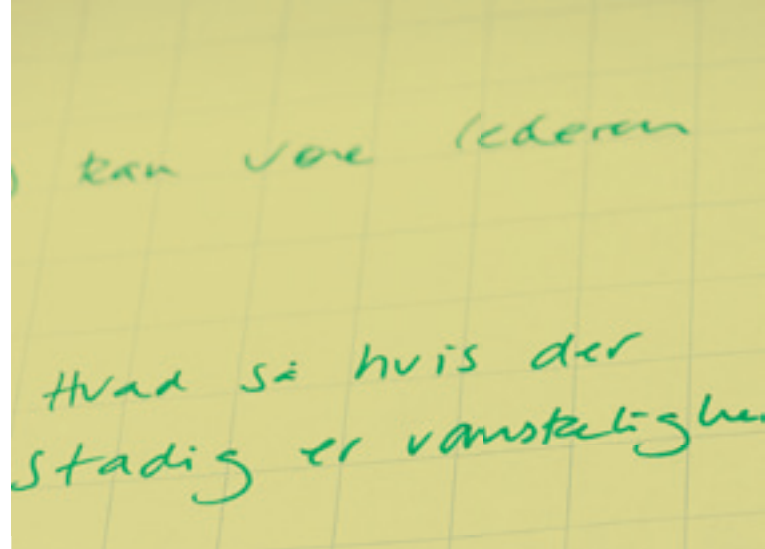 kan være lederen
Hvad så hvis der
stadig er vanskelighe